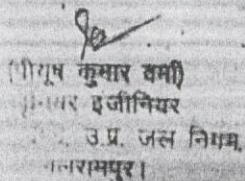 (पीयूष कुमार वर्मा)
इंजीनियर
उ.प्र. जल निगम,
बलरामपुर।